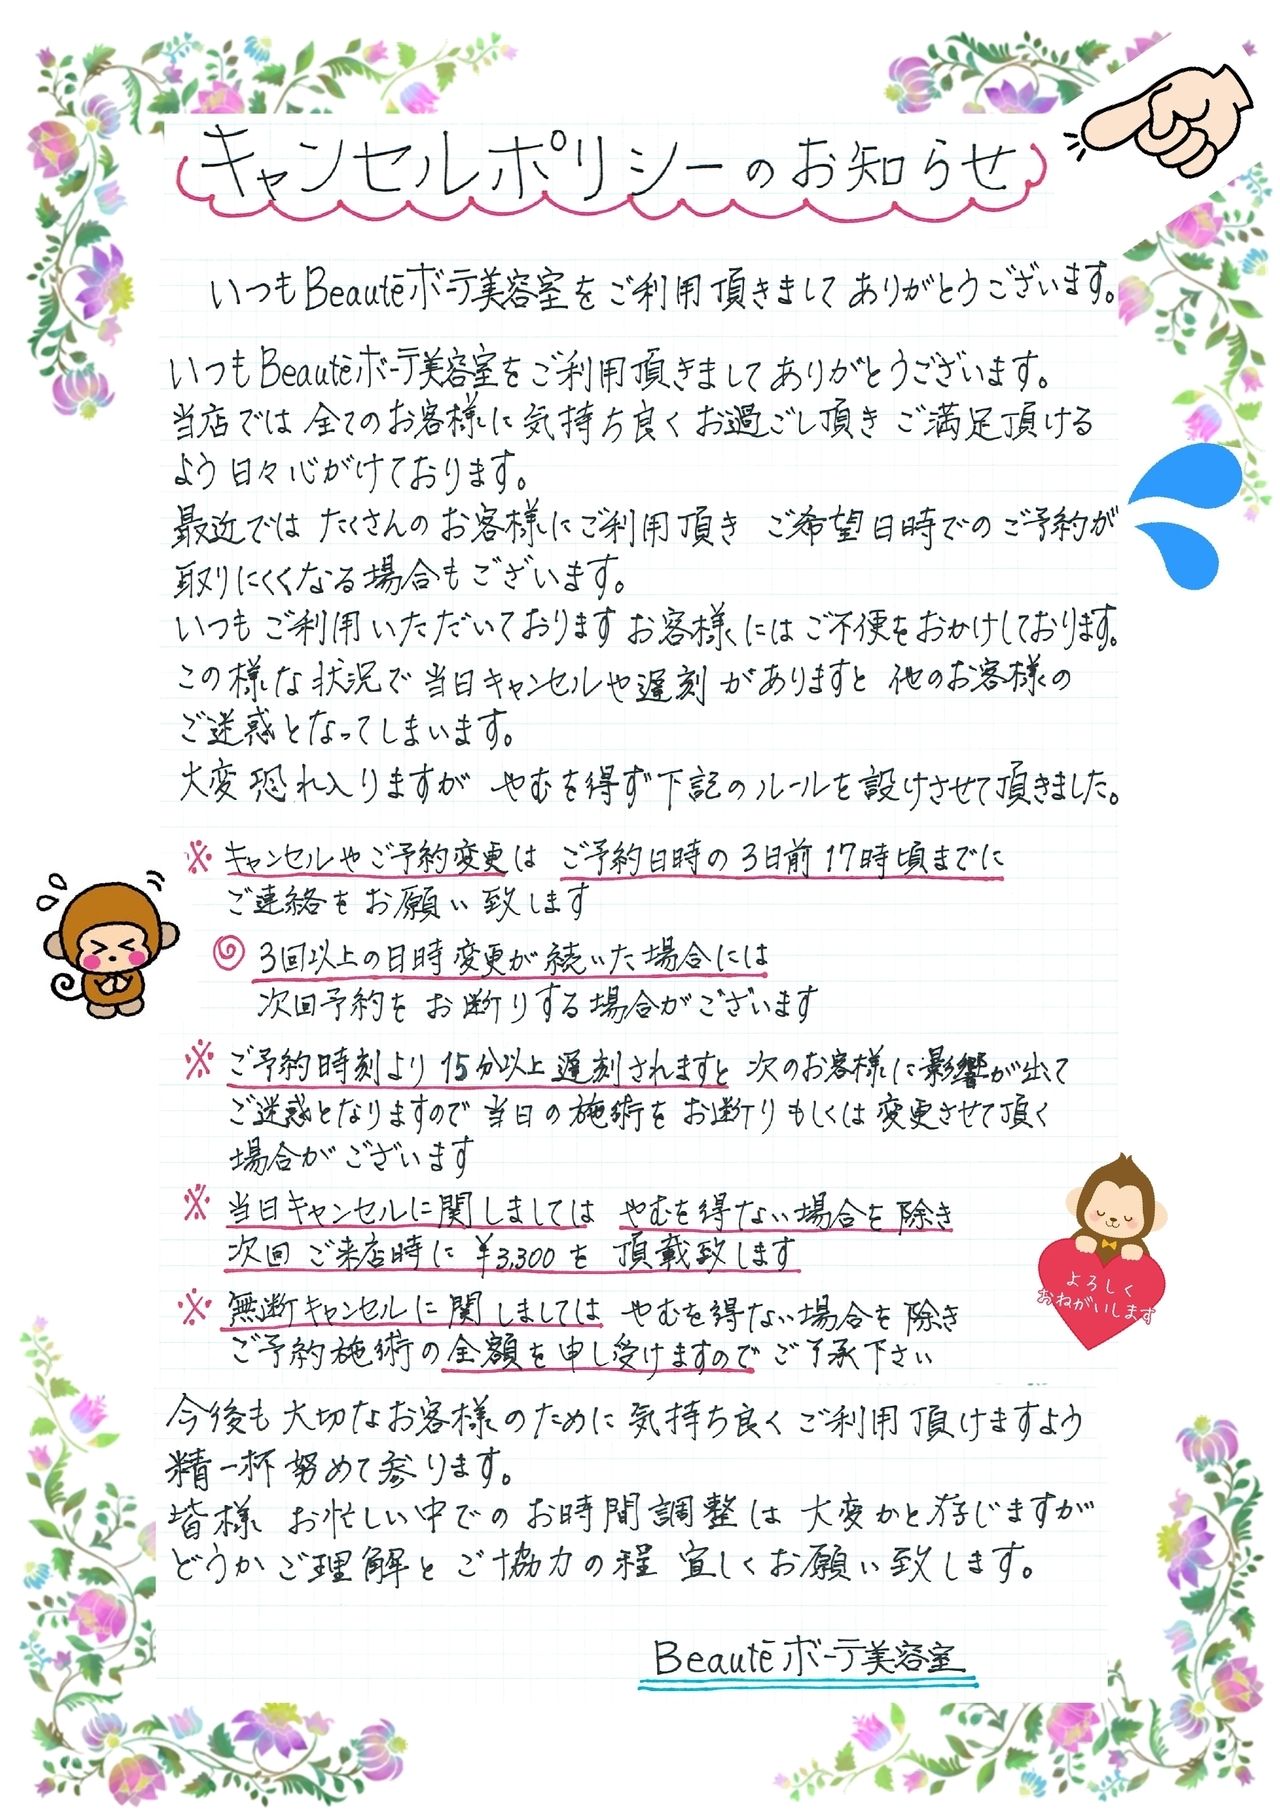 キャンセルポリシーのお知らせ
いつもBeautéボーテ美容室をご利用頂きましてありがとうございます。
いつもBeautéボーテ美容室をご利用頂きましてありがとうございます。
当店では全てのお客様に気持ち良くお過ごし頂きご満足頂ける
よう日々心がけております。
最近ではたくさんのお客様にご利用頂きご希望日時でのご予約が
取りにくくなる場合もございます。
いつもご利用いただいておりますお客様にはご不便をおかけしております。
この様な状況で当日キャンセルや遅刻がありますと他のお客様の
ご迷惑となってしまいます。
大変恐れ入りますがやむを得ず下記のルールを設けさせて頂きました。
※キャンセルやご予約変更はご予約日時の3日前17時頃までに
ご連絡をお願い致します
◎3回以上の日時変更が続いた場合には
次回予約をお断りする場合がございます
※ご予約時刻より15分以上遅刻されますと次のお客様に影響が出て
ご迷惑となりますので当日の施術をお断りもしくは変更させて頂く
場合がございます
※当日キャンセルに関しましてはやむを得ない場合を除き
次回ご来店時に¥3,300を頂載致します
※無断キャンセルに関しましてはやむを得ない場合を除き
ご予約施術の全額を申し受けますのでご了承下さい
よろしく
おねがいします
今後も大切なお客様のために気持ち良くご利用頂けますよう
精一杯努めて参ります。
皆様お忙しい中でのお時間調整は大変かと存じますが
どうかご理解とご協力の程宜しくお願い致します。
Beautéボーテ美容室